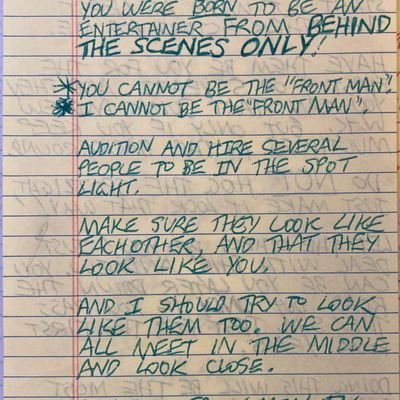 YOU WERE BORN TO BE AN
ENTERTAINER FROM BEHIND
THE SCENES ONLY!
*YOU CANNOT BE THE "FRONT MAN".
* I CANNOT BE THE "FRONT MAN".
AUDITION AND HIRE SEVERAL
PEOPLE TO BE IN THE SPOT
LIGHT.
MAKE SURE THEY LOOK LIKE
EACHOTHER, AND THAT THEY
LOOK LIKE YOU.
AND I SHOULD TRY TO LOOK
LIKE THEM TOO. WE CAN
ALL MEET IN THE MIDDLE
AND LOOK CLOSE.